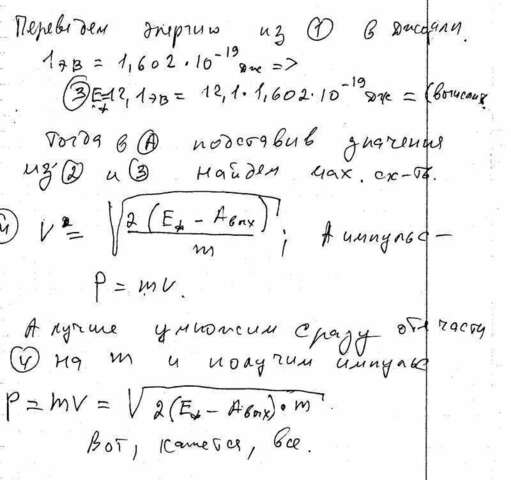 Переведем энергию из ① в джоули.
1эв = 1,602 · 10⁻¹⁹ дж =>
③ Eф=12,1эв = 12,1 · 1,602 · 10⁻¹⁹ дж =
Тогда в А подставив значения
из ② и ③ найдем мах. ск-ть.
④ V = √(2(Eф - Aвых)/m); А импульс -
P = mV.
А лучше умножим сразу обе части
④ на m и получим импульс
P = mV = √(2(Eф - Aвых) · m.
Вот, кажется, все.